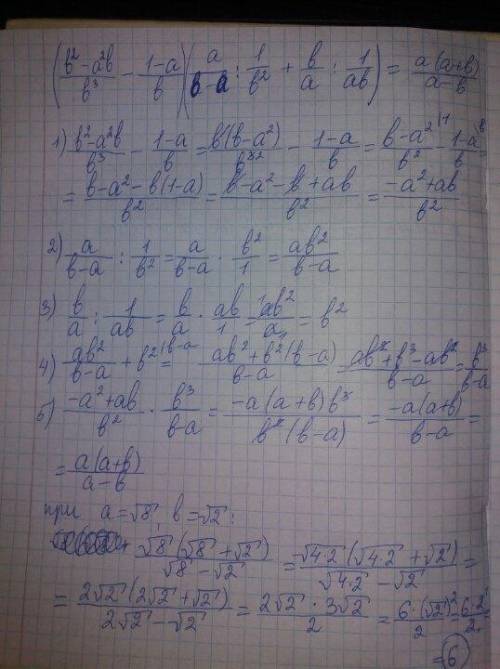 (b²-a²b/b³ - 1-a/b)(a/b-a : 1/b² + b/a : 1/ab) = a(a+b)/a-b
1) b²-a²b/b³ - 1-a/b = b(b-a²)/b³² - 1-a/b = b-a²/b² - 1-a/b =
= b-a²-b(1-a)/b² = b-a²-b+ab/b² = -a²+ab/b²
2) a/b-a : 1/b² = a/b-a · b²/1 = ab²/b-a
3) b/a : 1/ab = b/a · ab/1 = ab²/a = b²
4) ab²/b-a + b² = ab²+b²(b-a)/b-a = ab²+b³-ab²/b-a = b³/b-a
5) -a²+ab/b² · b³/b-a = -a(a+b)b³/b²(b-a) = -a(a+b)/b-a =
= a(a+b)/a-b
при a=√8, b=√2:
√8(√8+√2)/√8-√2 = √4·2(√4·2+√2)/√4·2-√2 =
= 2√2(2√2+√2)/2√2-√2 = 2√2·3√2/2 = 6·(√2)²/2 = 6·2/2 =
=6